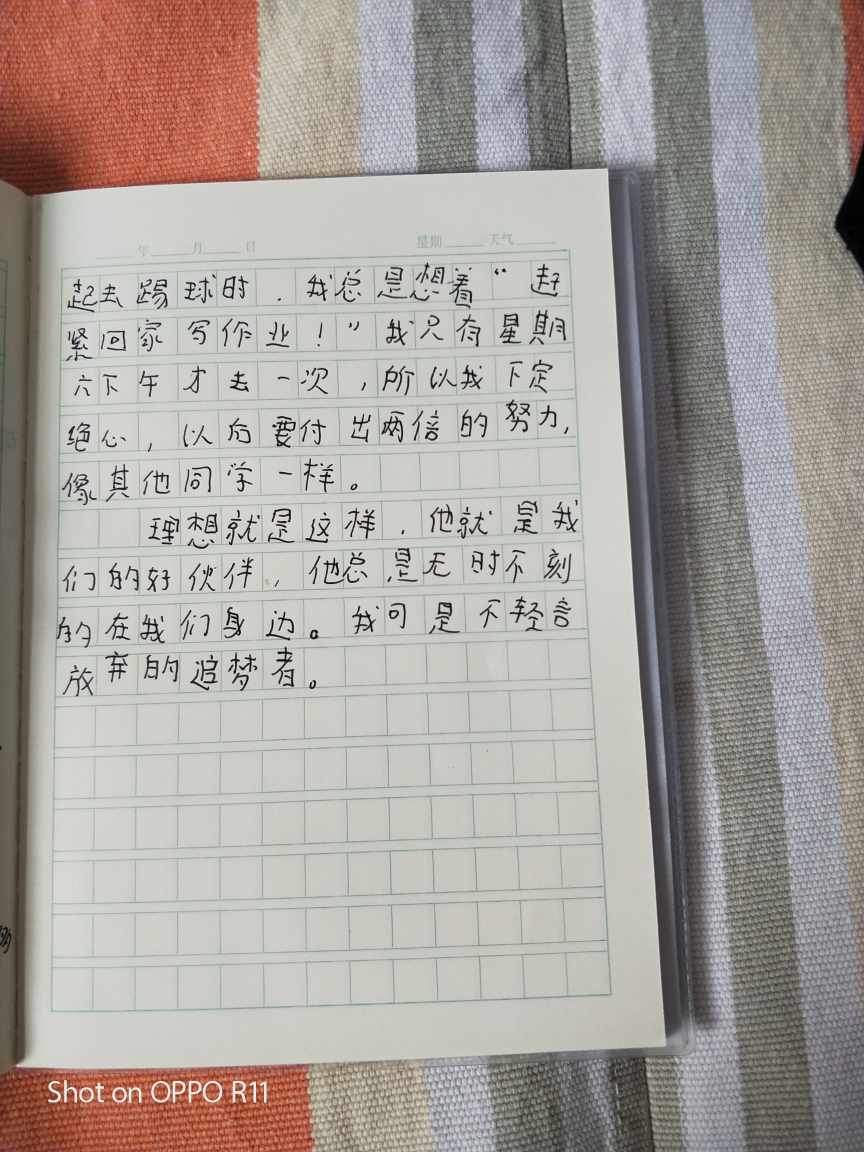 年 月 日 星期 天气
起去踢球时，我总是想着“赶
紧回家写作业！”我只有星期
六下午才去一次，所以我下定
绝心，以后要付出两倍的努力，
像其他同学一样。
理想就是这样，他就是我
们的好伙伴，他总是无时不刻
的在我们身边。我可是不轻言
放弃的追梦者。
Shot on OPPO R11